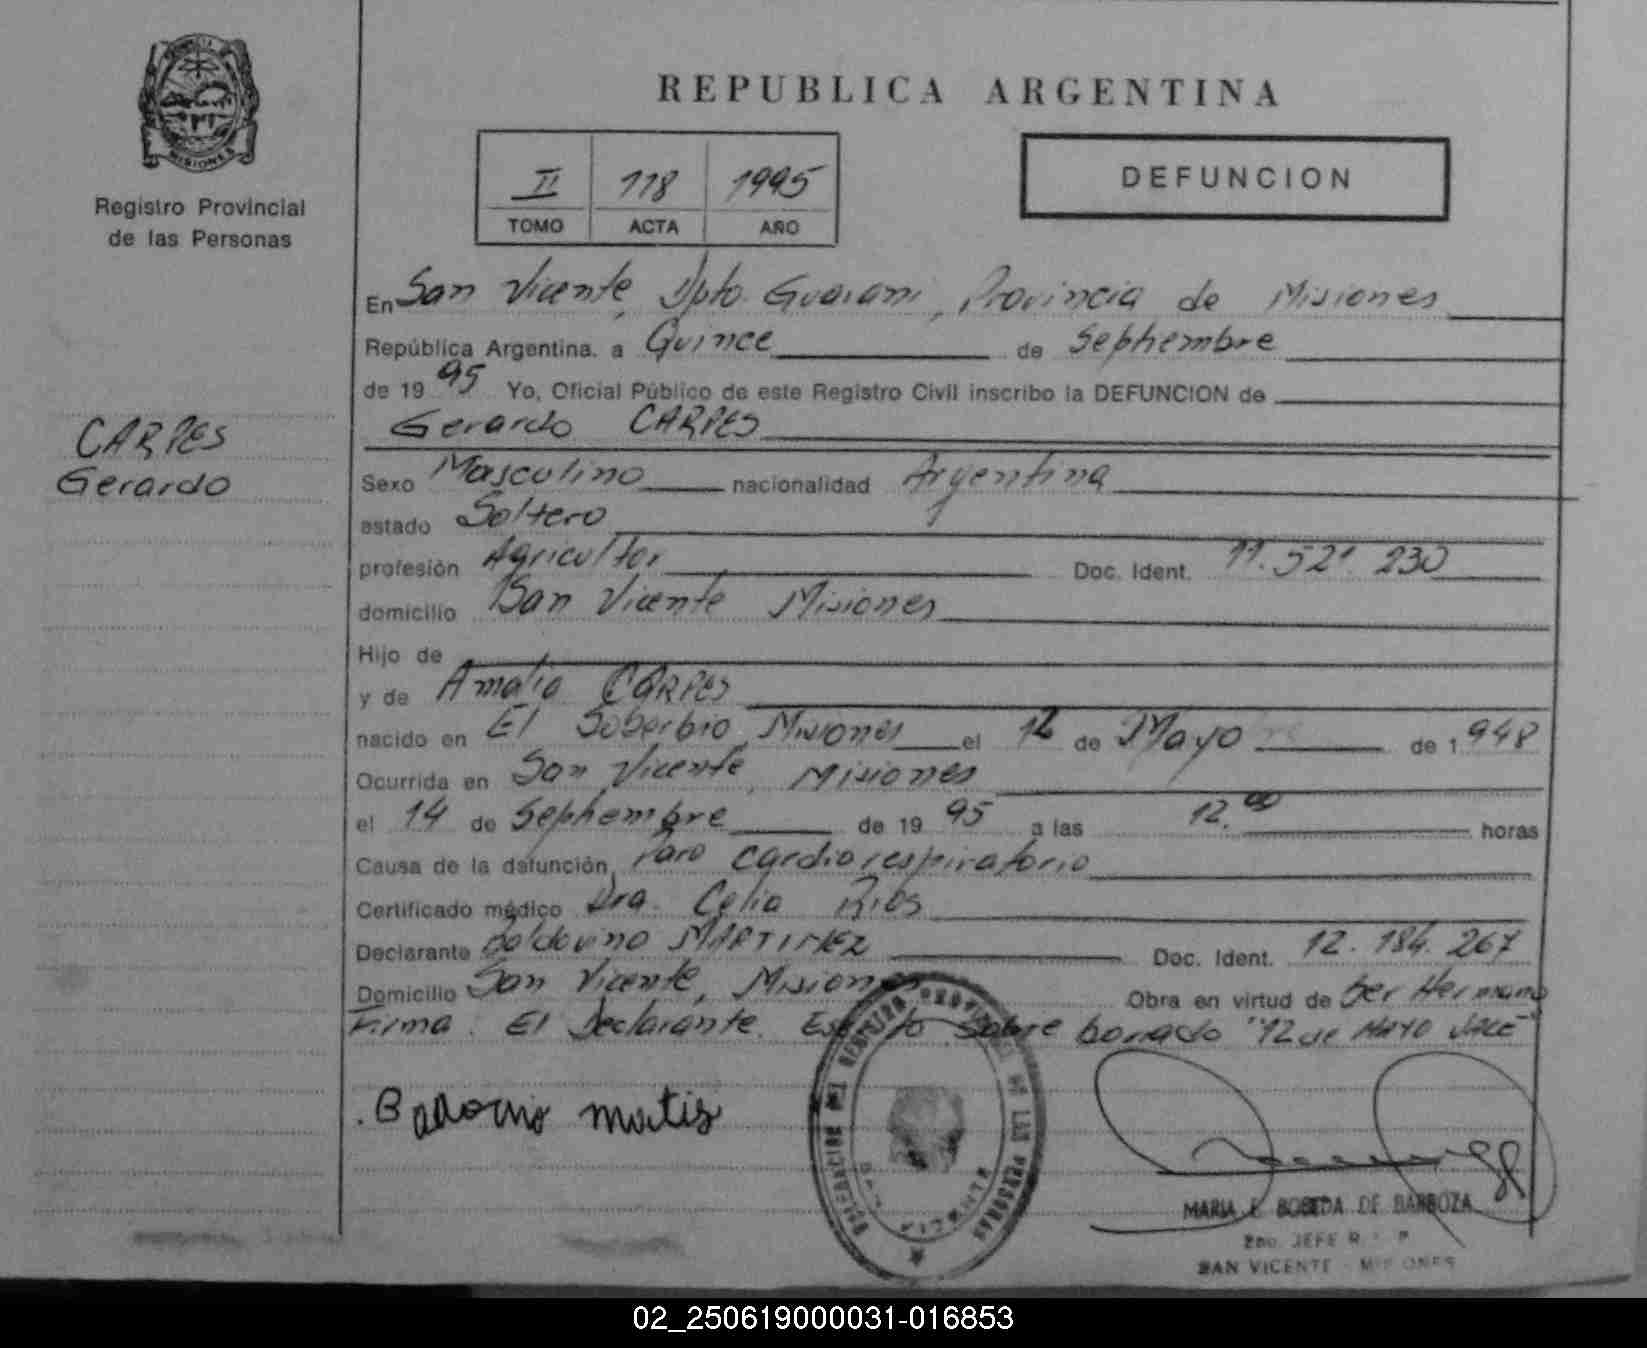 MISIONES
Registro Provincial
de las Personas
REPUBLICA ARGENTINA
II 118 1995
TOMO ACTA AÑO
DEFUNCION
En San Vicente, Dpto. Guarani, Provincia de Misiones
República Argentina. a Quince de Septiembre
de 19 95 Yo, Oficial Público de este Registro Civil inscribo la DEFUNCION de
Gerardo CARPES
CARPES
Gerardo
Sexo Masculino nacionalidad Argentina
estado Soltero
profesión Agricultor Doc. Ident. 11.521.230
domicilio San Vicente Misiones
Hijo de
y de Amalia CARPES
nacido en El Soberbio, Misiones el 12 de Mayo de 1 948
Ocurrida en San Vicente, Misiones
el 14 de Septiembre de 19 95 a las 12.00 horas
Causa de la defunción, Paro cardiorespiratorio
Certificado médico Dra. Celia Rios
Declarante Baldovino MARTINEZ Doc. Ident. 12.184.267
Domicilio San Vicente, Misiones Obra en virtud de Ser Hermano
Firma. El Declarante. Escrito sobre borrado "12 de MAYO VALE"
DELEGACION DEL REGISTRO PROVINCIAL DE LAS PERSONAS
SAN VICENTE
MARIA E. BOBEDA DE BARBOZA
2do. JEFE R. P.
SAN VICENTE - MISIONES
02_250619000031-016853